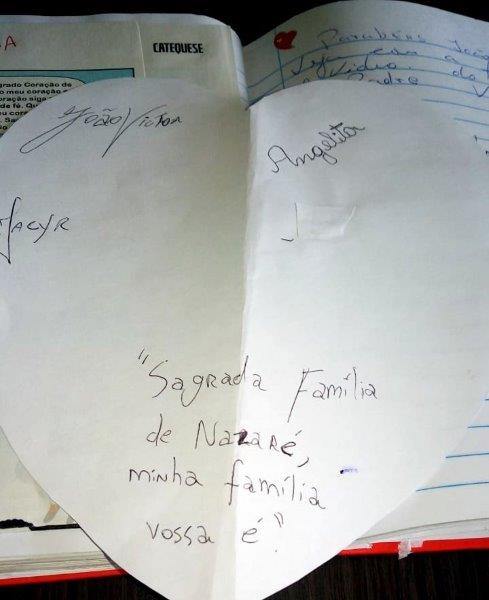 A
CATEQUESE
grado Coração de
o meu coração
oração siga o
de fé. Qu
Parabéns João
Vídeo do
Padre
João Victor
Angelita
Macyr
"Sagrada Família
de Nazaré,
minha família
vossa é"